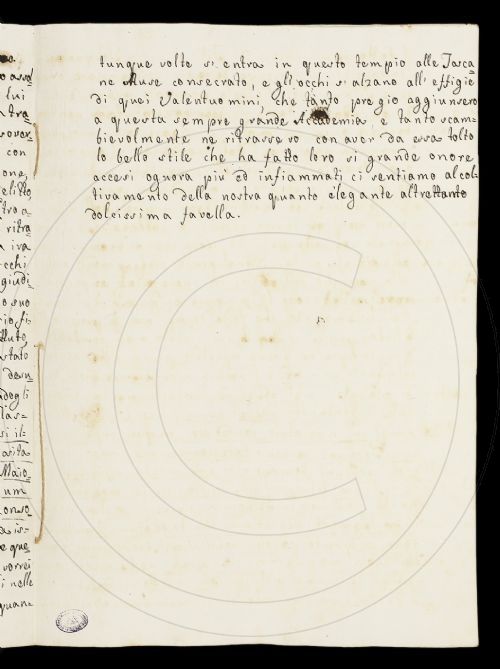 tunque volte si entra in questo tempio alle Tosca
ne Muse consecrato, e gl' occhi s' alzano all' effigie
di quei Valentuomini, che tanto pregio aggiunsero
a questa sempre grande Accademia, e tanto scam-
bievolmente ne ritrassero con aver da essa tolto
lo bello stile che ha fatto loro si grande onore
accesi ognora più ed infiammati ci sentiamo al col-
tivamento della nostra quanto elegante altrettanto
dolcissima favella.
lui
con
one,
ritra
a iva
cchi
giudi
o suo
stato
degli
si il-
Maio
um
e que
vorrei
i nelle
quan=